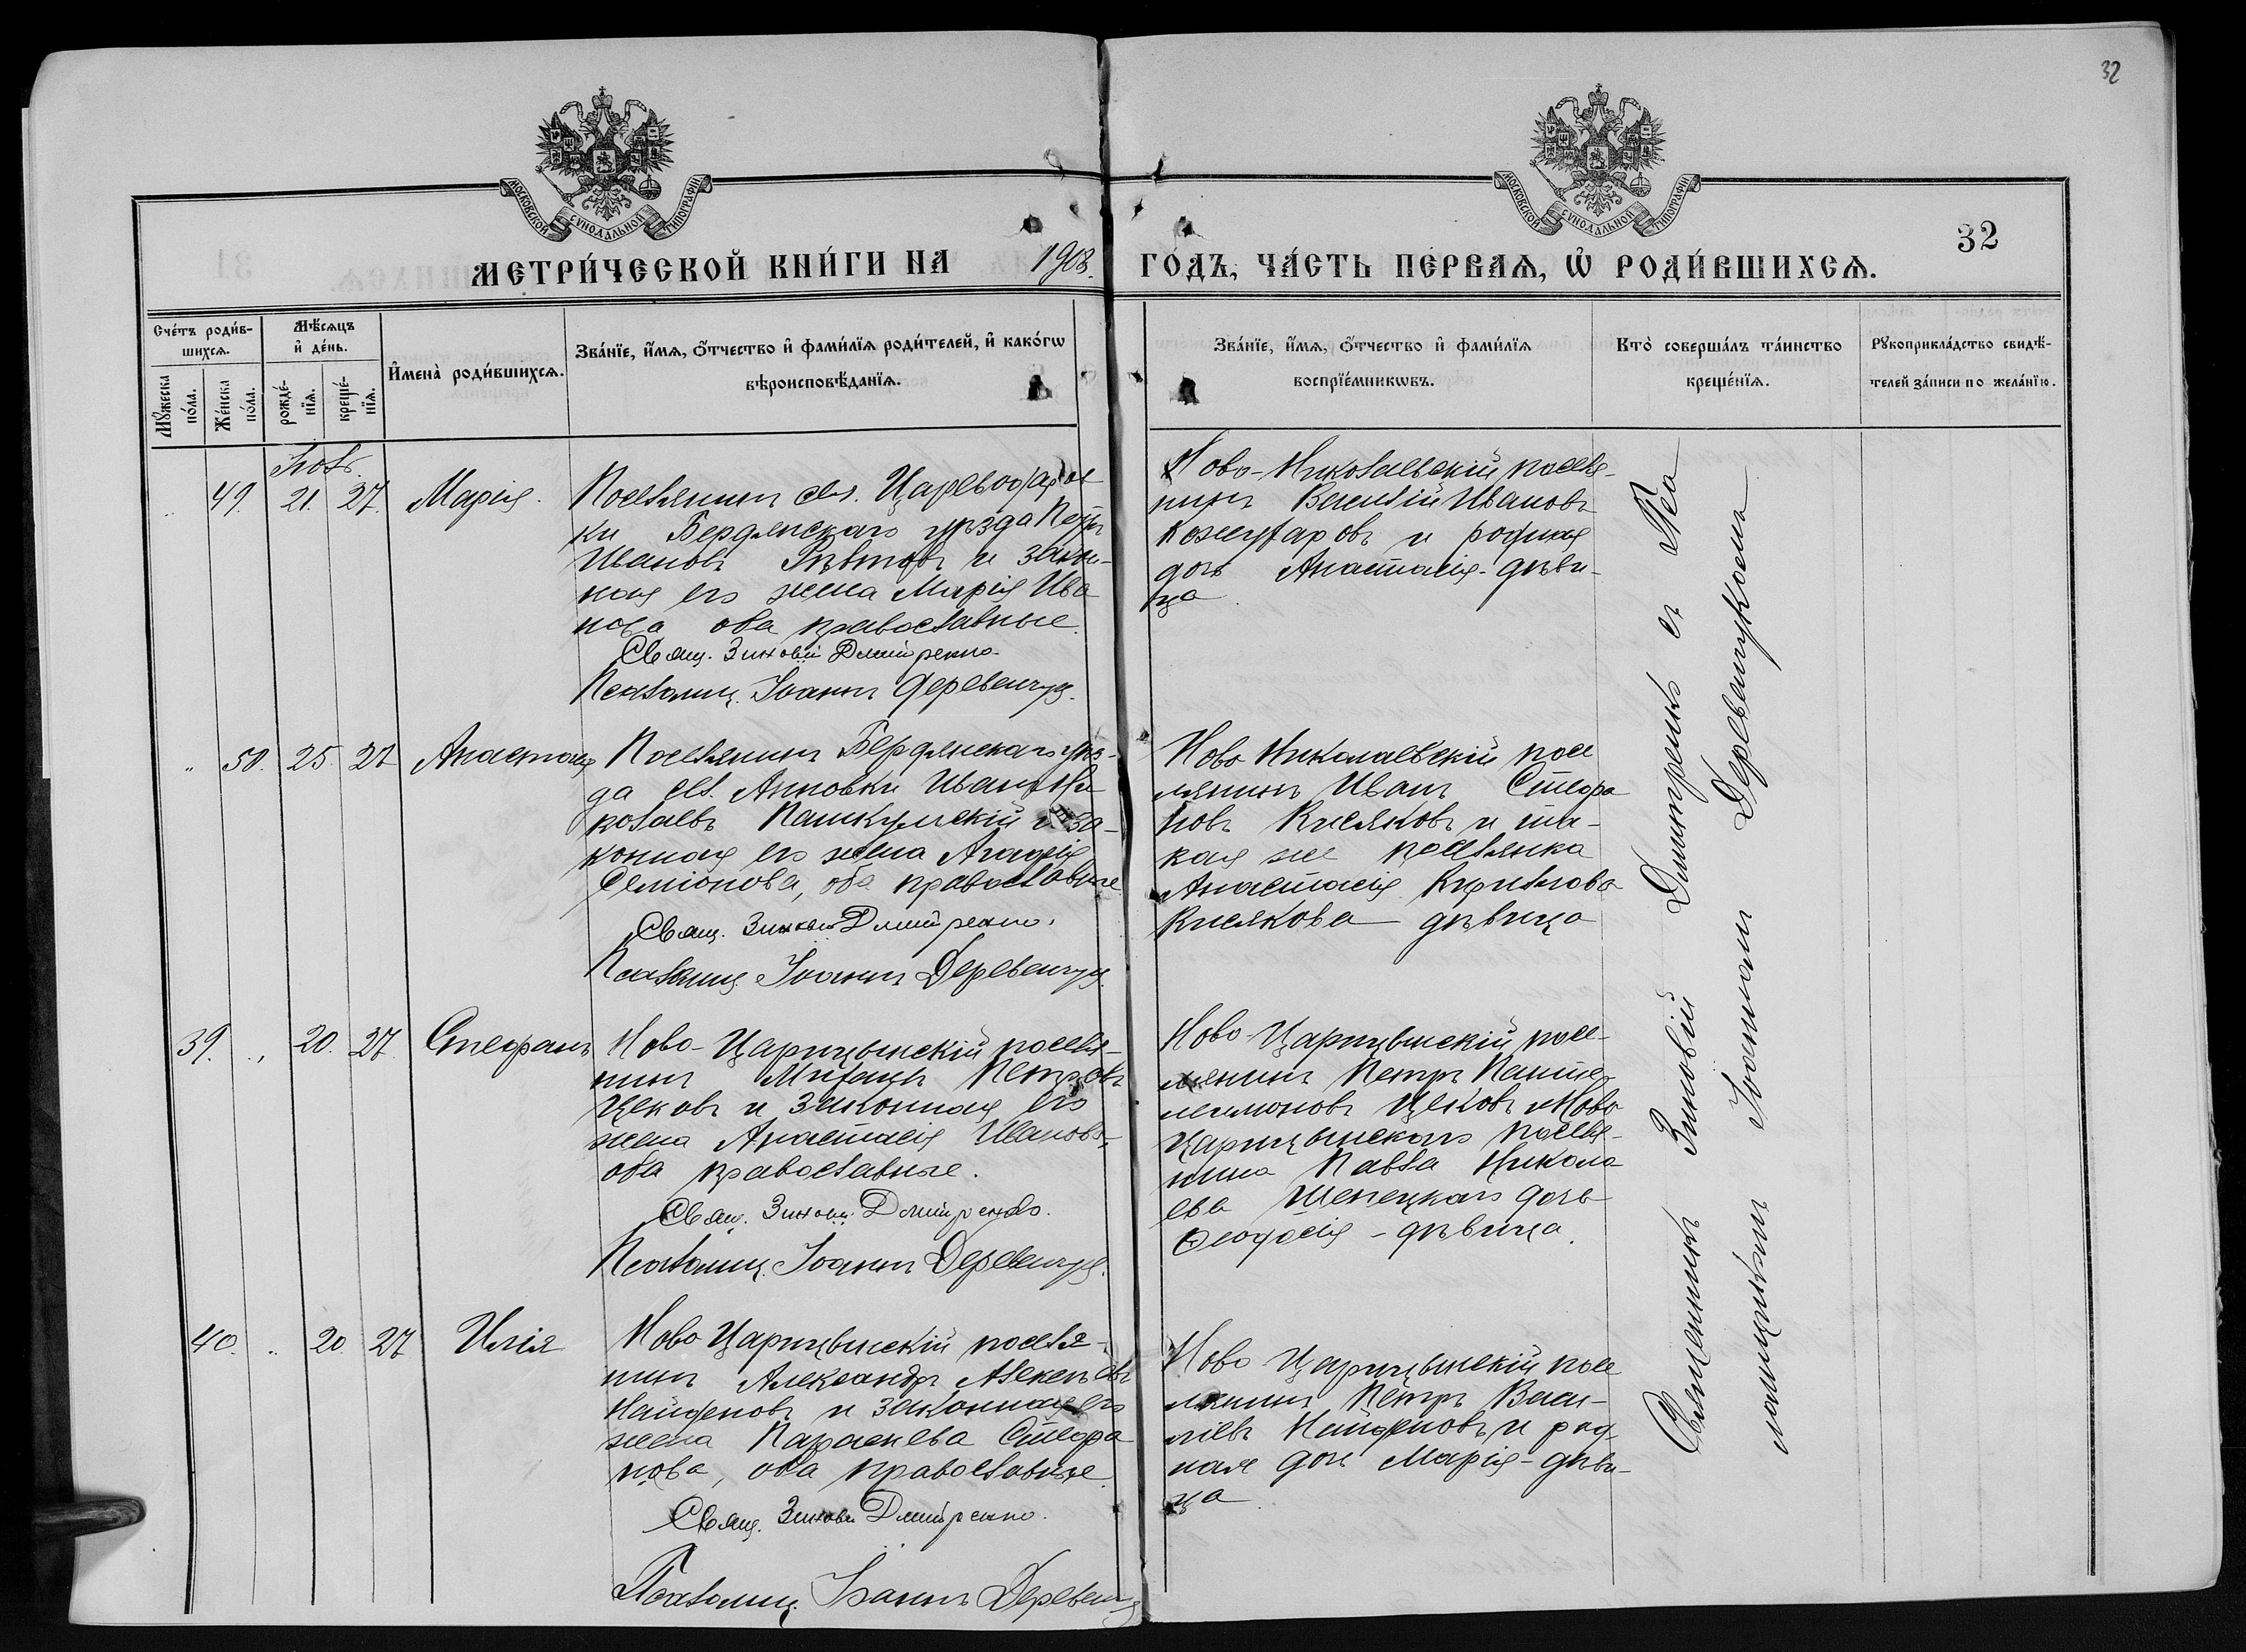 32
МОСКОВСКОЙ СѴНОДАЛЬНОЙ ТИПОГРАФІИ
МОСКОВСКОЙ СѴНОДАЛЬНОЙ ТИПОГРАФІИ
32
МЕТРИ́ЧЕСКОЙ КНИ́ГИ НА 1908. ГО́ДЪ, ЧА́СТЬ ПЕ́РВАѦ, Ѡ҆ РОДИ́ВШИХСѦ.
Сче́тъ роди́в-
шихсѧ.
Мꙋ́жеска
по́ла.
Же́нска
по́ла.
Мѣ́сѧцъ
и҆ де́нь.
рожде́-
нїѧ.
креще́-
нїѧ.
И҆мена̀ роди́вшихсѧ.
Зва́нїе, и҆́мѧ, ѻ҆́тчество и҆ фами́лїѧ роди́телей, и҆ како́гѡ
вѣроисповѣ́данїѧ.
Зва́нїе, и҆́мѧ, ѻ҆́тчество и҆ фами́лїѧ
воспрїе́мникѡвъ.
Кто̀ соверша́лъ та́инство
креще́нїѧ.
Рꙋкоприкла́дство свидѣ́-
телей за́писи по жела́нїю.
49. 21. 27. Марія.
Поселянинъ сел. Цареводаров
ки Бердянскаго уѣзда Петръ
Ивановъ и закон-
ная его жена Марія Ива
нова оба православные.
Свящ. Зиновій Дмитренко.
Псаломщ. Іоаннъ Деревенчук.
Ново-Николаевскій поселя-
нинъ Василій Ивановъ
Кожухаровъ и родная
дочь Анастасія-дѣви-
ца.
50. 25. 27 Анастасія
Поселянинъ Бердянскаго уѣз-
да сел. Анновки Иванъ Ни
колаевъ и за-
конная его жена Агафія
Семіонова, оба православные.
Свящ. Зиновій Дмитренко.
Псаломщ. Іоаннъ Деревенчук.
Ново Николаевскій посе
лянинъ Иванъ Стефа
новъ Кисяковъ и та-
кая же поселянка
Анастасія Кирилова
Кисякова дѣвица
39. 20. 27 Стефанъ
Ново-Царицынскій поселя-
нинъ Михаилъ Петровъ
Цековъ и законная его
жена Анастасія Иванова,
оба православные.
Свящ. Зиновій Дмитренко.
Псаломщ. Іоаннъ Деревенчук.
Ново-Царицынскій посе-
лянинъ Петръ Панте-
леимоновъ Цековъ и Ново
Царицынскаго поселя-
нина Павла Никола
ева дочь
Ѳеодосія - дѣвица.
40. 20. 27 Илія
Ново Царицынскій поселя-
нинъ Александръ Алексѣевъ
Найденовъ и законная его
жена Параскева Стефа
нова, оба православные.
Свящ. Зиновій Дмитренко.
Псаломщ. Іоаннъ Деревенчук
Ново Царицынскій посе
лянинъ Петръ Васи-
ліевъ Найденовъ и род
ная дочь Марія-дѣви-
ца.
Священникъ Зиновій Димитренко съ Пса
ломщикомъ Іоанномъ Деревенчукомъ